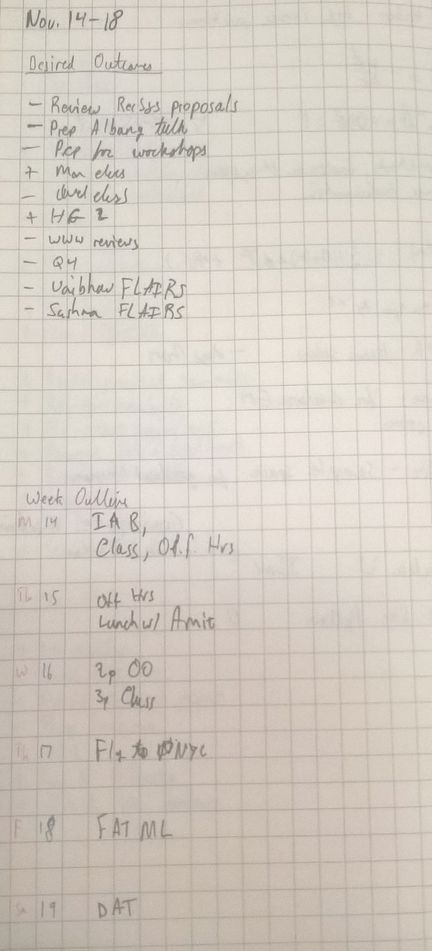 Nov. 14-18
Desired Outcomes
- Review RecSys proposals
- Prep Albany talk
- Prep for workshops
+ Mon class
- Wed class
+ HG 2
- WWW reviews
- Q4
- Vaibhav FLAIRS
- Sushma FLAIRS
Week Outline
M 14 IAB,
Class, Off. Hrs
Tu 15 Off Hrs
Lunch w/ Amit
W 16 2p OO
3p Class
Th 17 Fly to NYC
F 18 FAT ML
Sa 19 DAT